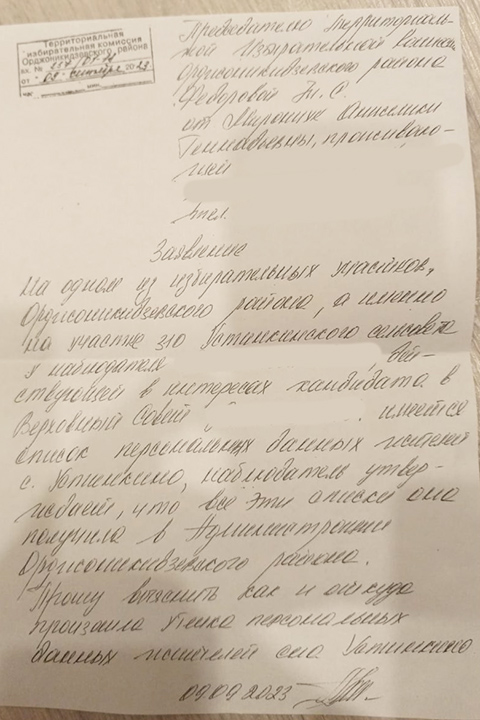 Территориальная
избирательная комиссия
Орджоникидзевского района
вх. №
от 09 сентября 2023
Председателю Территориаль-
ной Избирательной комиссии
Орджоникидзевского района
Федоровой Н. С.
от Мирончик Анжелики
Геннадьевны, проживаю-
щей
тел.
Заявление
На одном из избирательных участков,
Орджоникидзевского района, а именно
на участке 310 Устинкинского сельсовета
у наблюдателя дей-
ствующей в интересах кандидата в
Верховный Совет имеется
список персональных данных жителей
с. Устинкино, наблюдатель утвер-
ждает, что все эти списки она
получила в Администрации
Орджоникидзевского района.
Прошу выяснить как и откуда
произошла утечка персональных
данных жителей села Устинкино
09.09.2023